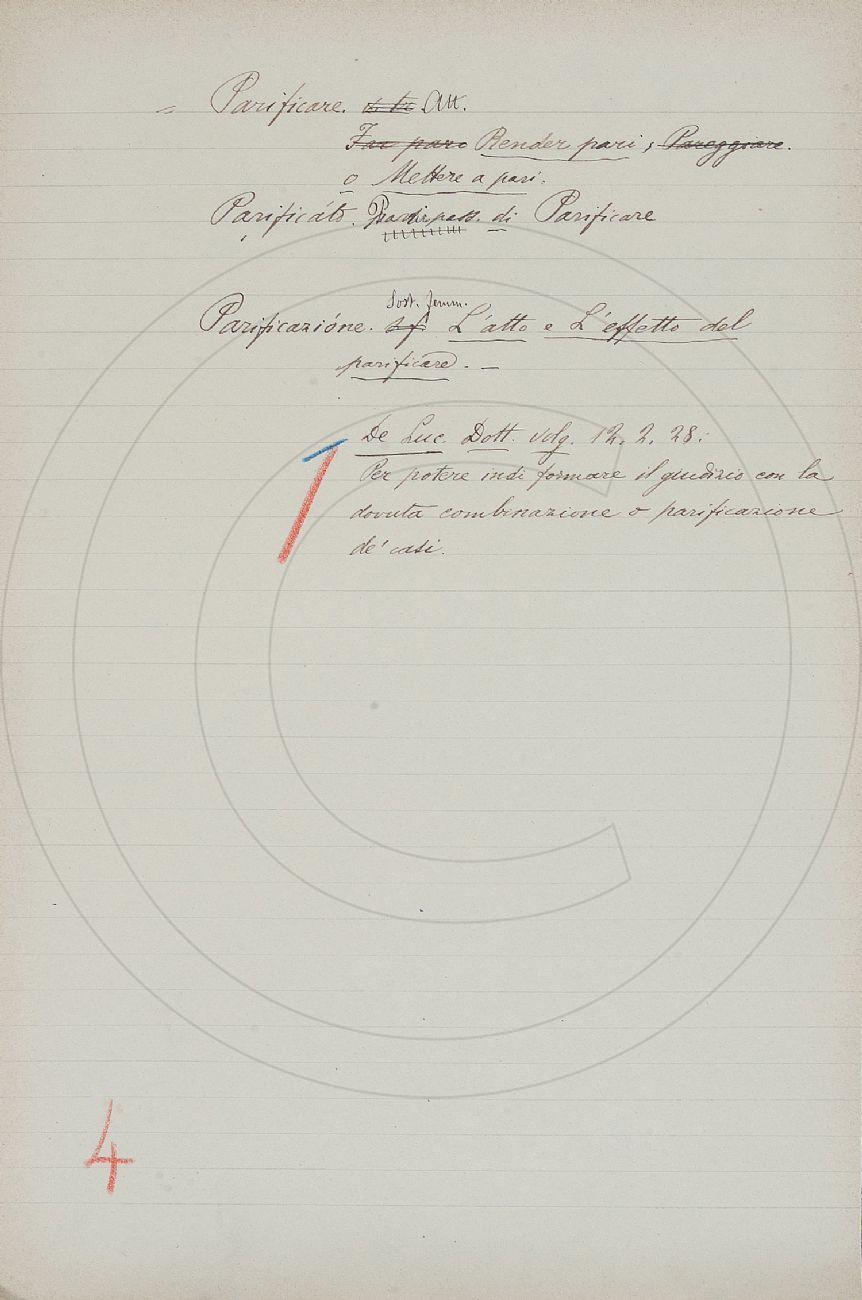 = Parificare. v. tr. Att.
Far pari Render pari, Pareggiare.
o Mettere a pari.
Parificáto. Partic. pass. di Parificare
Sost. femm.
Parificazióne. sf L'atto e L'effetto del
parificare. —
De Luc. Dott. volg. 12. 2. 28:
Per potere indi formare il giudizio con la
dovuta combinazione o parificazione
de' casi.
4